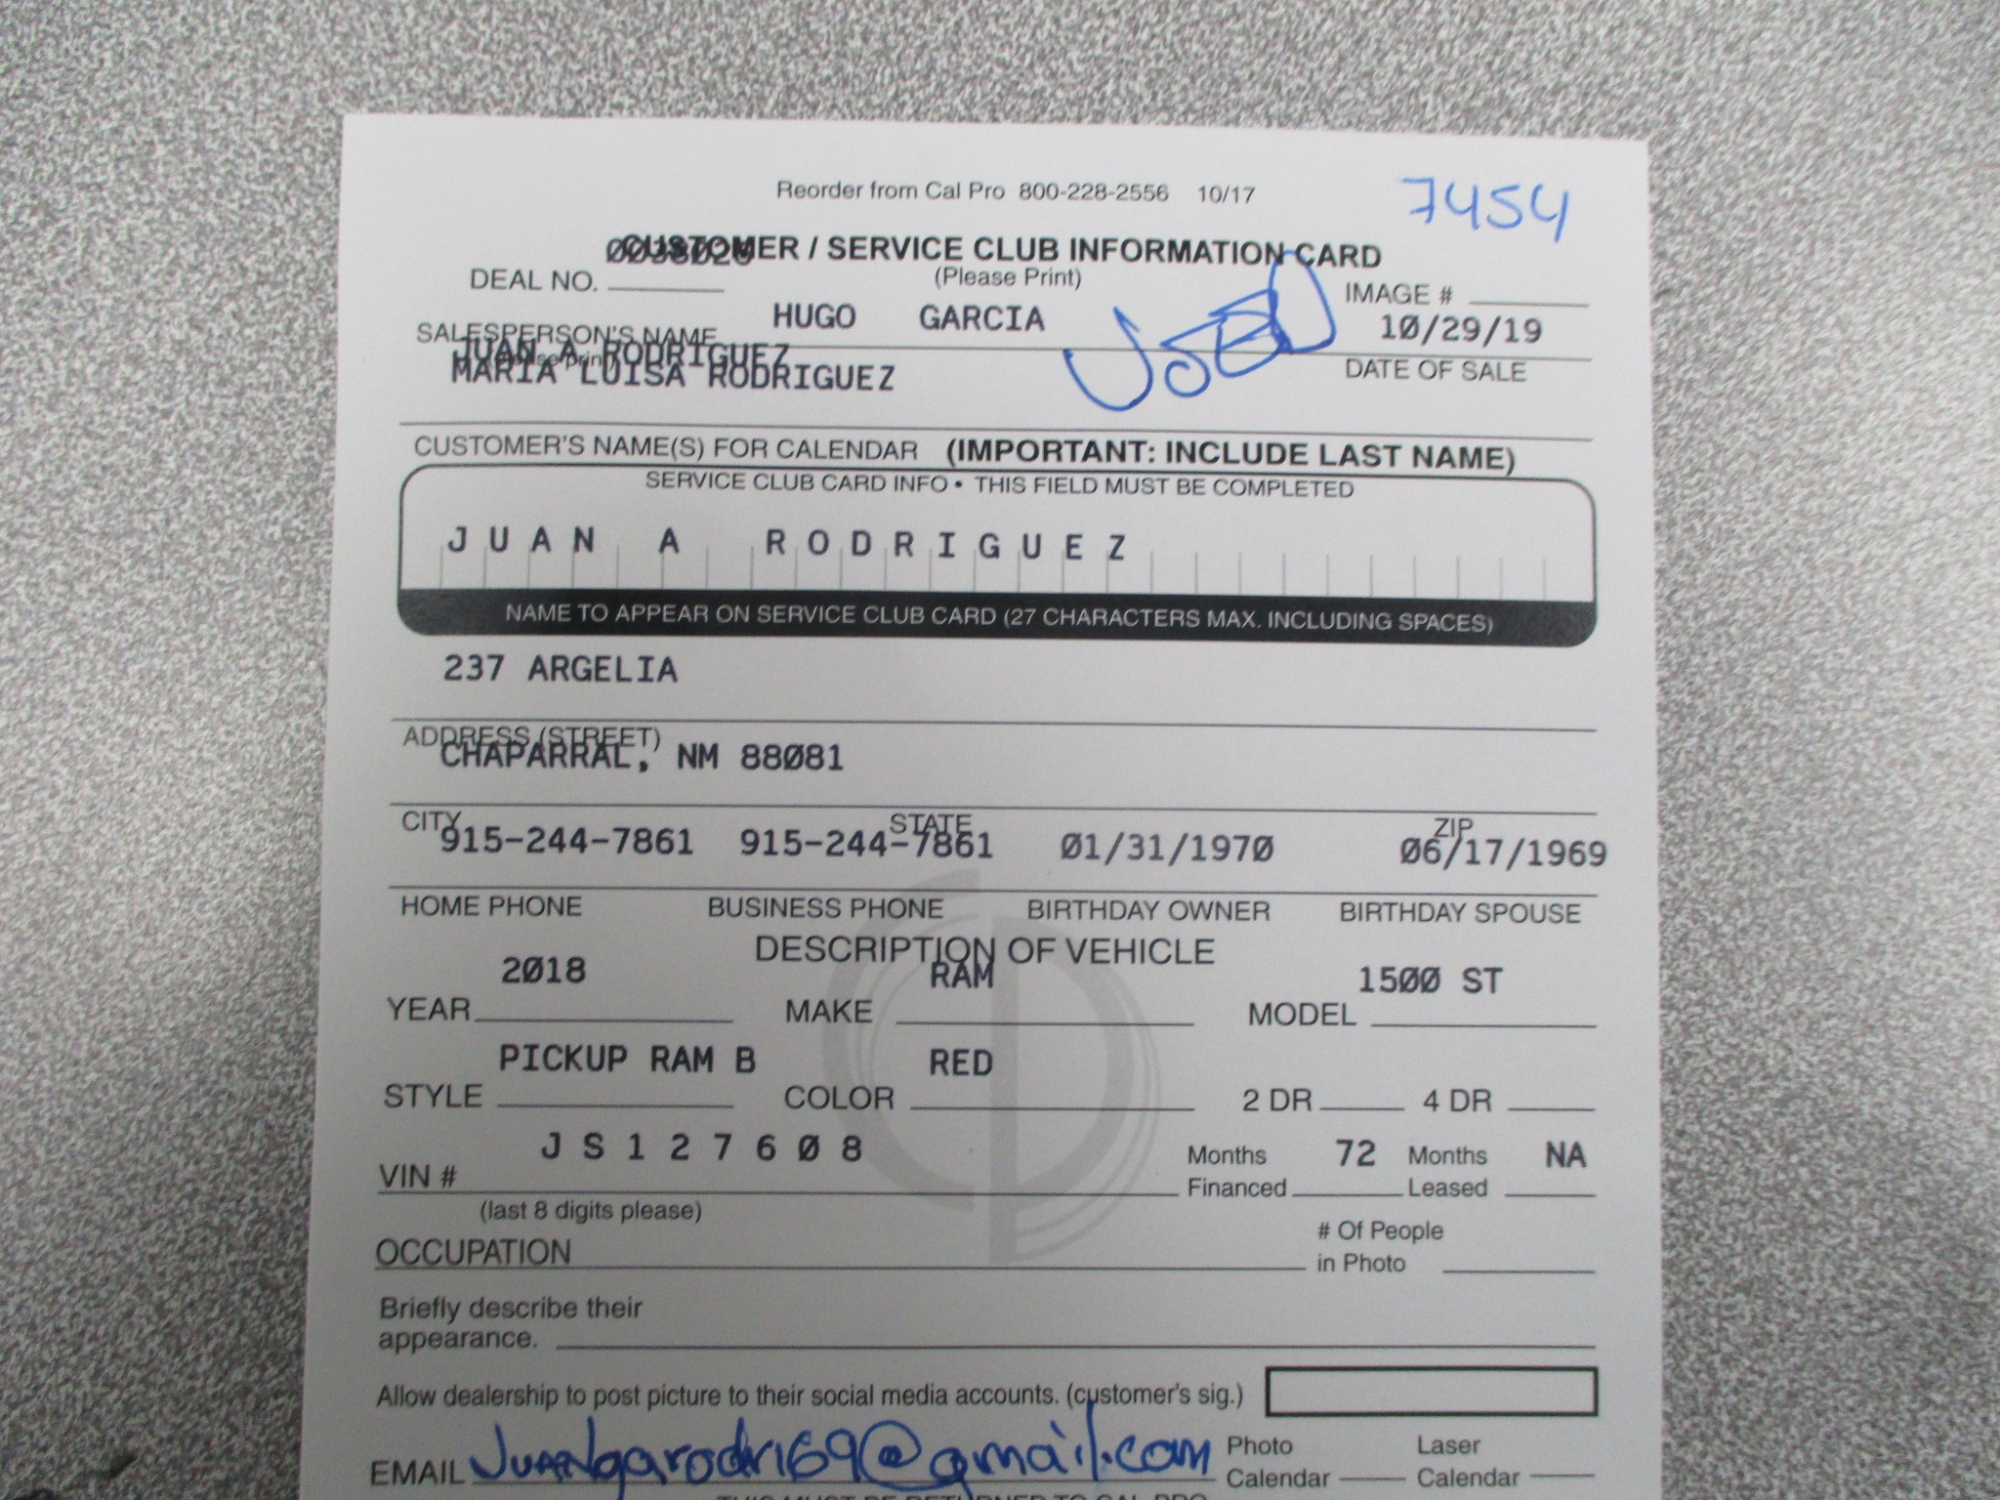 Reorder from Cal Pro 800-228-2556 10/17
7454
CUSTOMER / SERVICE CLUB INFORMATION CARD
(Please Print)
DEAL NO.
IMAGE #
HUGO GARCIA
10/29/19
SALESPERSON'S NAME
JUAN A RODRIGUEZ
DATE OF SALE
MARIA LUISA RODRIGUEZ
CUSTOMER'S NAME(S) FOR CALENDAR (IMPORTANT: INCLUDE LAST NAME)
SERVICE CLUB CARD INFO • THIS FIELD MUST BE COMPLETED
JUAN A RODRIGUEZ
NAME TO APPEAR ON SERVICE CLUB CARD (27 CHARACTERS MAX. INCLUDING SPACES)
237 ARGELIA
ADDRESS (STREET)
CHAPARRAL, NM 88081
CITY STATE ZIP
915-244-7861 915-244-7861 01/31/1970 06/17/1969
HOME PHONE BUSINESS PHONE BIRTHDAY OWNER BIRTHDAY SPOUSE
DESCRIPTION OF VEHICLE
2018 RAM 1500 ST
YEAR MAKE MODEL
PICKUP RAM B RED
STYLE COLOR 2 DR 4 DR
JS127608
VIN # Months Financed 72 Months Leased NA
(last 8 digits please)
OCCUPATION # Of People in Photo
Briefly describe their
appearance.
Allow dealership to post picture to their social media accounts. (customer's sig.)
EMAIL Photo Calendar Laser Calendar
THIS MUST BE RETURNED TO CAL PRO